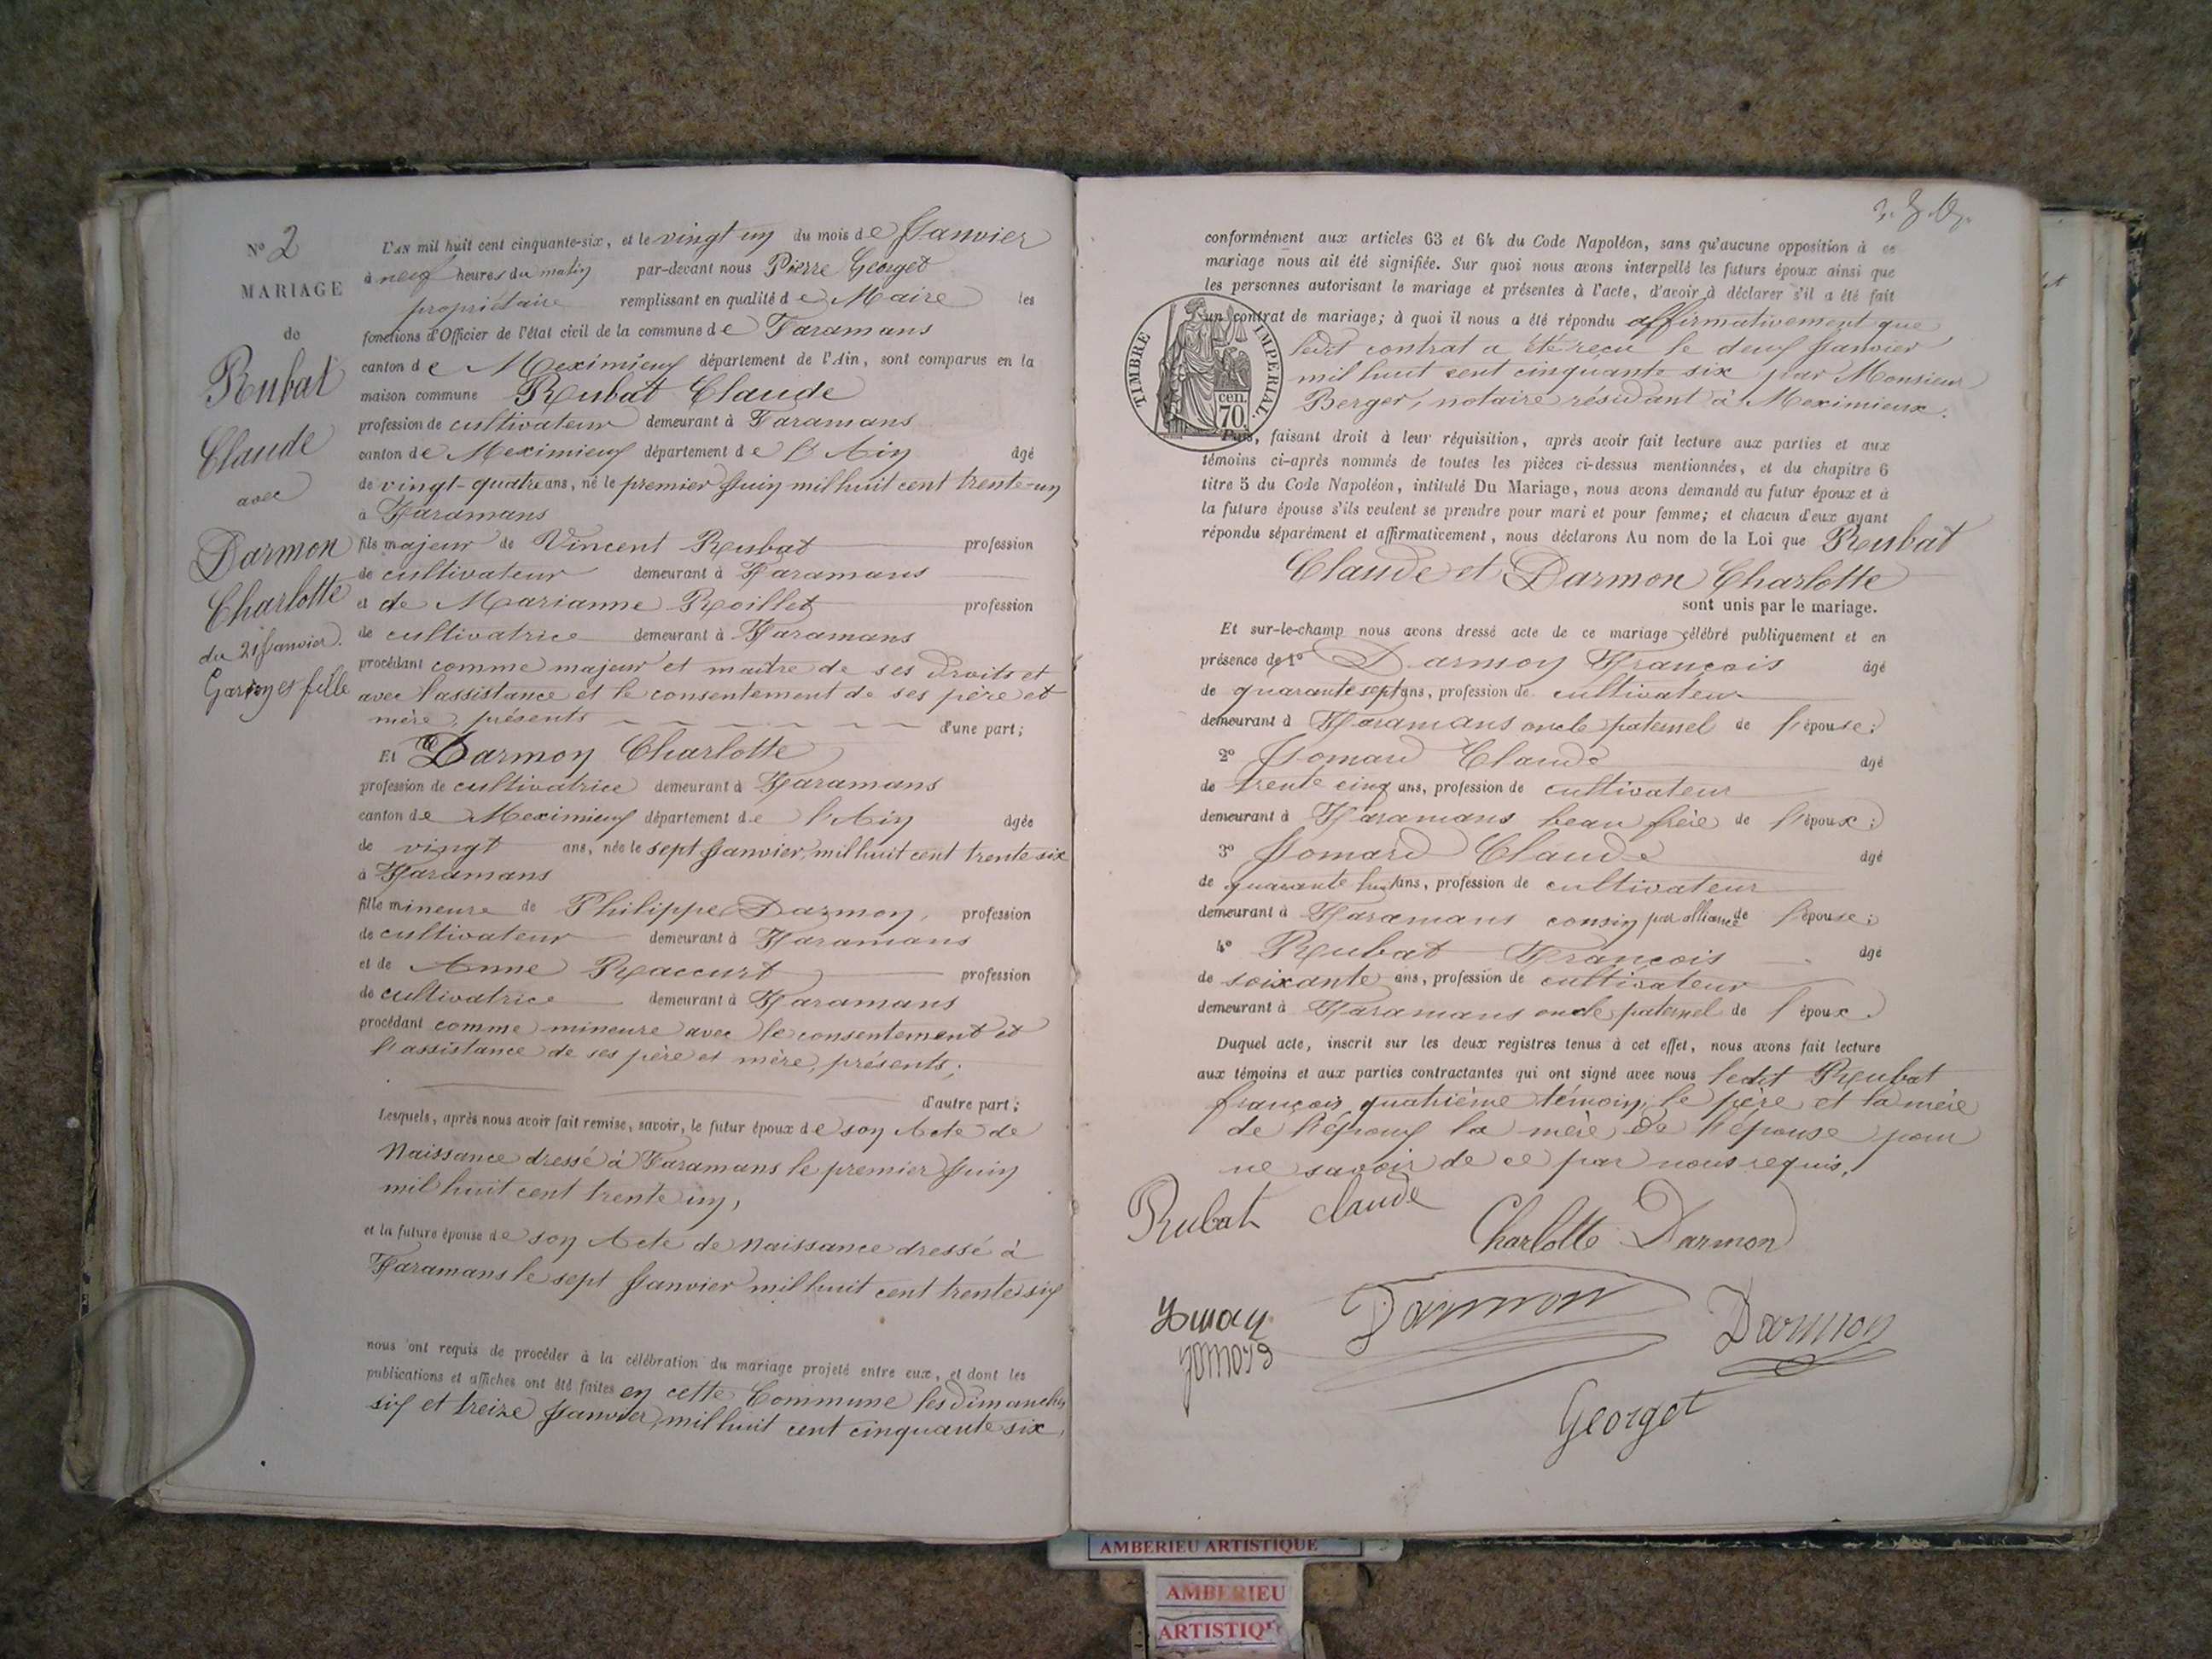 N° 2
MARIAGE
de
Rubat
Claude
avec
Darmon
Charlotte
du 21 Janvier.
Garçon et fille
L'AN mil huit cent cinquante-six, et le vingt un du mois de Janvier
à neuf heures du matin par-devant nous Pierre Georget
propriétaire remplissant en qualité de Maire les
fonctions d'Officier de l'état civil de la commune de Faramans
canton de Meximieux département de l'Ain, sont comparus en la
maison commune Rubat Claude
profession de cultivateur demeurant à Faramans
canton de Meximieux département de l'Ain âgé
de vingt-quatre ans, né le premier Juin mil huit cent trente-un
à Faramans
fils majeur de Vincent Rubat profession
de cultivateur demeurant à Faramans
et de Marianne Roillet profession
de cultivatrice demeurant à Faramans
procédant comme majeur et maître de ses droits et
avec l'assistance et le consentement de ses père et
mère, présents d'une part;
Et Darmon Charlotte
profession de cultivatrice demeurant à Faramans
canton de Meximieux département de l'Ain âgée
de vingt ans, née le sept Janvier, mil huit cent trente six
à Faramans
fille mineure de Philippe Darmon, profession
de cultivateur demeurant à Faramans
et de Anne Raccurt profession
de cultivatrice demeurant à Faramans
procédant comme mineure avec le consentement et
l'assistance de ses père et mère, présents;
d'autre part;
Lesquels, après nous avoir fait remise, savoir, le futur époux de son Acte de
Naissance dressé à Faramans le premier Juin
mil huit cent trente un,
et la future épouse de son Acte de Naissance dressé à
Faramans le sept Janvier mil huit cent trente six
nous ont requis de procéder à la célébration du mariage projeté entre eux, et dont les
publications et affiches ont été faites en cette Commune les Dimanches
six et treize Janvier, mil huit cent cinquante six,
conformément aux articles 63 et 64 du Code Napoléon, sans qu'aucune opposition à ce
mariage nous ait été signifiée. Sur quoi nous avons interpellé les futurs époux ainsi que
les personnes autorisant le mariage et présentes à l'acte, d'avoir à déclarer s'il a été fait
un contrat de mariage; à quoi il nous a été répondu affirmativement que
ledit contrat a été reçu le deux Janvier
mil huit cent cinquante six par Monsieur
Berger, notaire résidant à Meximieux.
TIMBRE IMPÉRIAL.
cen.
70.
Puis, faisant droit à leur réquisition, après avoir fait lecture aux parties et aux
témoins ci-après nommés de toutes les pièces ci-dessus mentionnées, et du chapitre 6
titre 5 du Code Napoléon, intitulé Du Mariage, nous avons demandé au futur époux et à
la future épouse s'ils veulent se prendre pour mari et pour femme; et chacun d'eux ayant
répondu séparément et affirmativement, nous déclarons Au nom de la Loi que Rubat
Claude et Darmon Charlotte
sont unis par le mariage.
Et sur-le-champ nous avons dressé acte de ce mariage célébré publiquement et en
présence de 1° Darmon François âgé
de quarante sept ans, profession de cultivateur
demeurant à Faramans oncle paternel de l'épouse;
2° Jomard Claude âgé
de trente cinq ans, profession de cultivateur
demeurant à Faramans beau frère de l'époux;
3° Jomard Claude âgé
de quarante huit ans, profession de cultivateur
demeurant à Faramans cousin par alliance de l'épouse;
4° Rubat François âgé
de soixante ans, profession de cultivateur
demeurant à Faramans oncle paternel de l'époux.
Duquel acte, inscrit sur les deux registres tenus à cet effet, nous avons fait lecture
aux témoins et aux parties contractantes qui ont signé avec nous ledit Rubat
françois quatrième témoin, le père et la mère
de l'époux la mère de l'épouse pour
ne savoir de ce par nous requis.
Rubat claude
Charlotte Darmon
Darmon
Darmon
Georget
AMBERIEU ARTISTIQUE
AMBERIEU
ARTISTIQUE